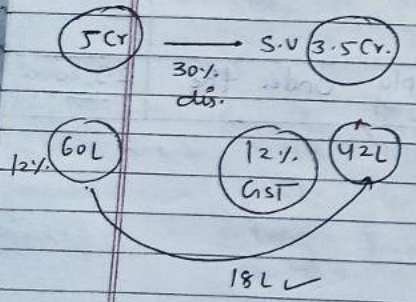 5 Cr → S.V 3.5 Cr.
30%
dis.
12% 60L 12% 42L
GST
18L ✓